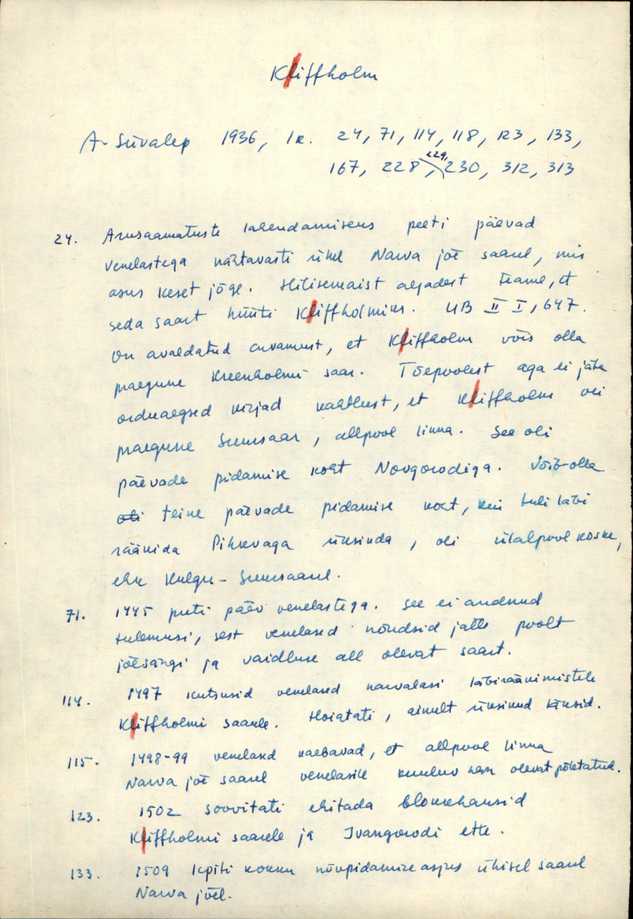 Kliffholm
A. Süvalep 1936, lk. 24, 71, 114, 118, 123, 133,
167, 228, 229, 230, 312, 313
24. Arusaamatuste lahendamiseks peeti päevad
venelastega nähtavasti ühel Narva jõe saarel, mis
asus keset jõge. Hilisemaist aljadest teame, et
seda saart hüüti Kliffholmiks. UB II I, 647.
On avaldatud arvamust, et Kliffholm võis olla
praegune Kreenholmi saar. Tõepoolest aga ei jäta
orduaegsed kirjad kahtlust, et Kliffholm oli
praegune Suursaar, allpool linna. See oli
päevade pidamise koht Novgorodiga. Võib-olla
teine päevade pidamise koht, kui tuli läbi
rääkida Pihkvaga üksinda, oli ülalpool koske,
ehk Kulgu-Suursaarel.
71. 1445 peeti päev venelastega. See ei andnud
tulemusi, sest venelased nõudsid jälle poolt
jõesängi ja vaidluse all olevat saart.
114. 1497 kutsusid venelased narvalasi läbirääkimistele
Kliffholmi saarele. Hoiatati, ainult üksikud käisid.
115. 1498-99 venelased kaebavad, et allpool linna
Narva jõe saarel venelasile kuuluv olevat põletatud.
123. 1502 soovitati ehitada blokhausid
Kliffholmi saarele ja Ivangorodi ette.
133. 1509 lepiti kokku nõupidamise asjus ühisel saarel
Narva jõel.